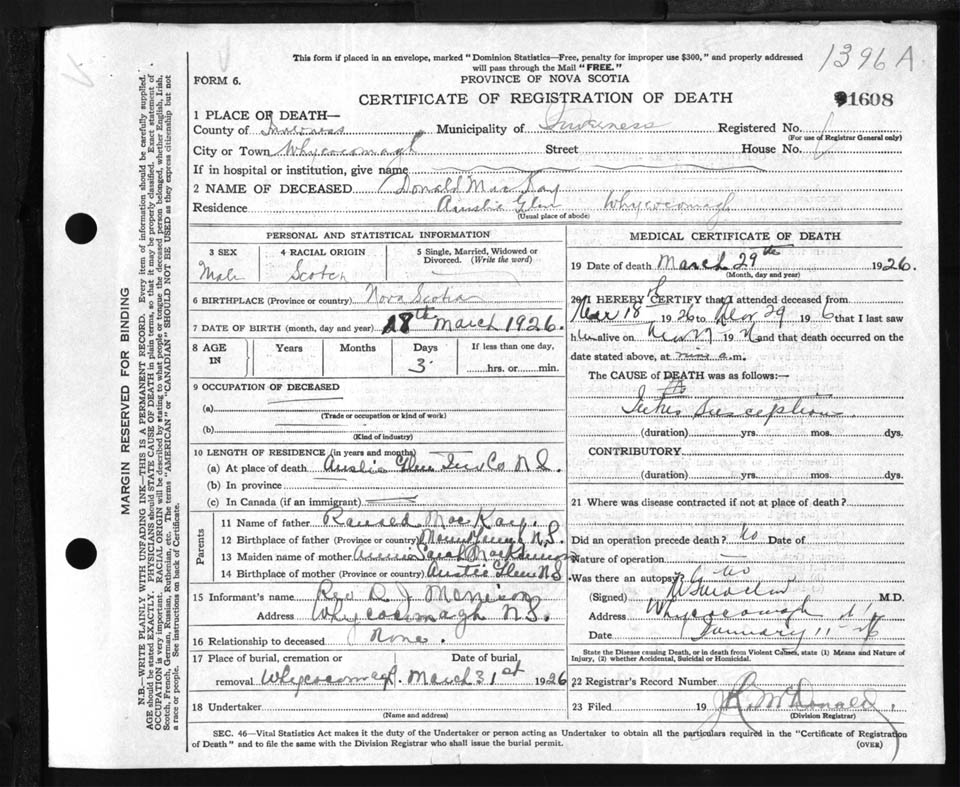 1396 A
This form if placed in an envelope, marked "Dominion Statistics—Free, penalty for improper use $300," and properly addressed
will pass through the Mail "FREE."
FORM 6.
PROVINCE OF NOVA SCOTIA
CERTIFICATE OF REGISTRATION OF DEATH
1608
1 PLACE OF DEATH—
County of Inverness Municipality of Inverness Registered No.
(For use of Registrar General only)
City or Town Whycocomagh Street House No.
If in hospital or institution, give name
2 NAME OF DECEASED Donald MacKay
Residence Ainslie Glen Whycocomagh
(Usual place of abode)
PERSONAL AND STATISTICAL INFORMATION
3 SEX
Male
4 RACIAL ORIGIN
Scotch
5 Single, Married, Widowed or
Divorced. (Write the word)
6 BIRTHPLACE (Province or country) Nova Scotia
7 DATE OF BIRTH (month, day and year) 18th March 1926.
8 AGE
IN
Years
Months
Days
3
If less than one day,
hrs. or min.
9 OCCUPATION OF DECEASED
(a)
(Trade or occupation or kind of work)
(b)
(Kind of industry)
10 LENGTH OF RESIDENCE (in years and months)
(a) At place of death Ainslie Glen Inv Co N.S.
(b) In province
(c) In Canada (if an immigrant)
Parents
11 Name of father MacKay.
12 Birthplace of father (Province or country) N.S.
13 Maiden name of mother Sarah MacKinnon
14 Birthplace of mother (Province or country) Ainslie Glen N.S.
15 Informant's name Rev D. J.
Address Whycocomagh N.S.
16 Relationship to deceased None.
17 Place of burial, cremation or
removal Whycocomagh.
Date of burial,
March 31st 1926
18 Undertaker
(Name and address)
MEDICAL CERTIFICATE OF DEATH
19 Date of death March 29th 1926.
(Month, day and year)
20 I HEREBY CERTIFY that I attended deceased from
Mar 18 1926 to Mar 29 19 6 that I last saw
him alive on 19 and that death occurred on the
date stated above, at nine a.m.
The CAUSE of DEATH was as follows:—
(duration) yrs. mos. dys.
CONTRIBUTORY
(duration) yrs. mos. dys.
21 Where was disease contracted if not at place of death?
Did an operation precede death? No Date of
Nature of operation
Was there an autopsy? No
(Signed) M.D.
Address Whycocomagh
Date January 11-26
State the Disease causing Death, or in death from Violent Causes, state (1) Means and Nature of
Injury, (2) whether Accidental, Suicidal or Homicidal.
22 Registrar's Record Number
23 Filed 19 McDonald
(Division Registrar)
SEC. 46—Vital Statistics Act makes it the duty of the Undertaker or person acting as Undertaker to obtain all the particulars required in the "Certificate of Registration
of Death" and to file the same with the Division Registrar who shall issue the burial permit.
(OVER)
MARGIN RESERVED FOR BINDING
N.B.—WRITE PLAINLY WITH UNFADING INK—THIS IS A PERMANENT RECORD. Every item of information should be carefully supplied.
AGE should be stated EXACTLY. PHYSICIANS should STATE CAUSE OF DEATH in plain terms, so that it may be properly classified. Exact statement of
OCCUPATION is very important. RACIAL ORIGIN will be described by stating to what people or tongue the deceased person belonged, whether English, Irish,
Scotch, French, German, Russian, Ruthenian, etc. The terms "AMERICAN" or "CANADIAN" SHOULD NOT BE USED as they express citizenship but not
a race or people. See instructions on back of Certificate.